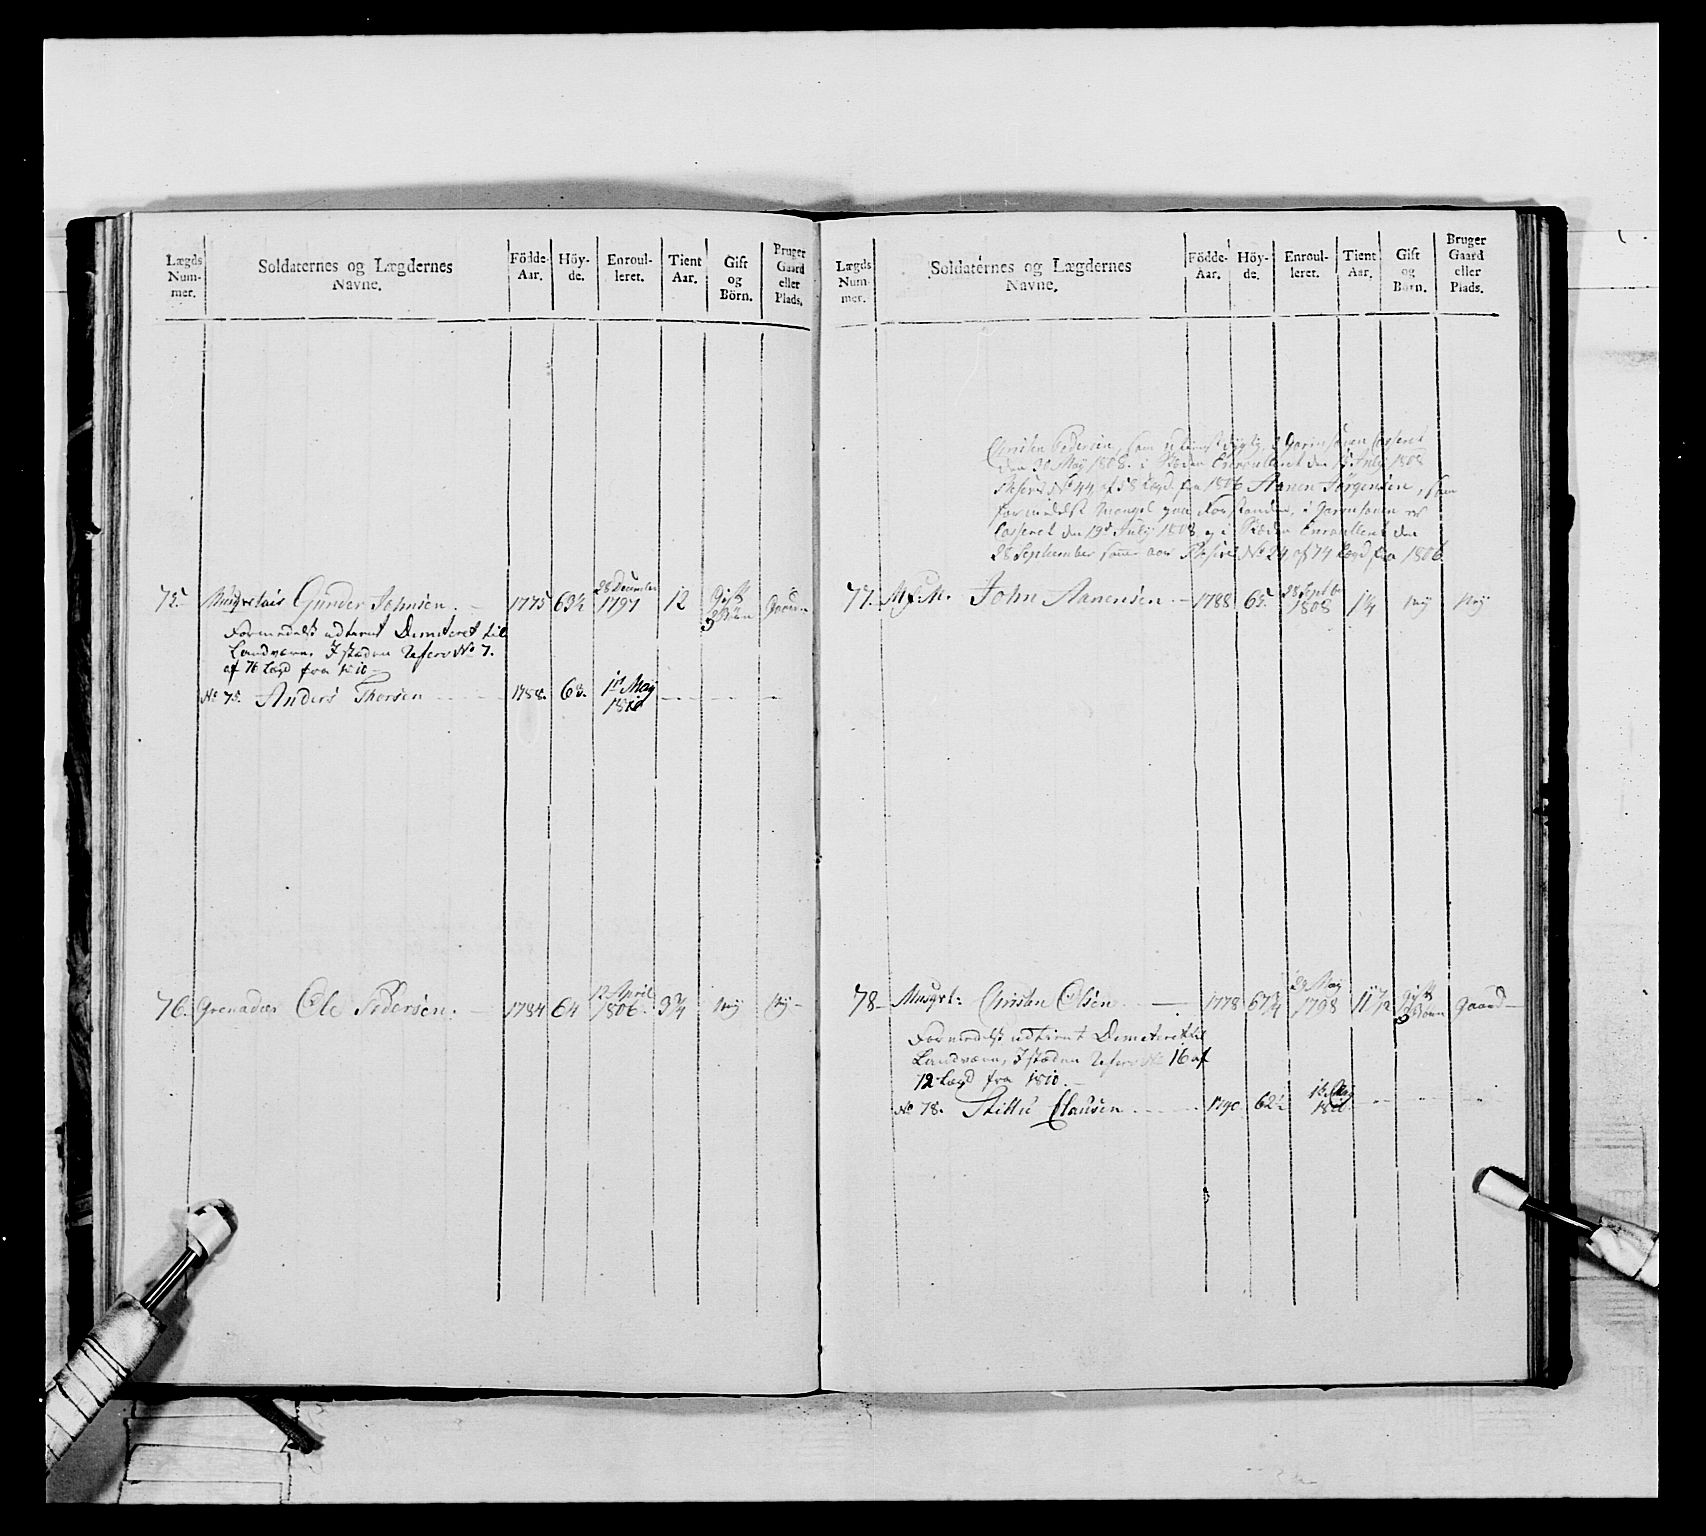 Lægds Num- mer.
Soldaternes og Lægdernes Navne.
Födde- Aar.
Höy- de.
Enroul- leret.
Tient Aar.
Gift og Börn.
Bruger Gaard eller Plads.
75. Musqvetair Gunder Johnsen. 1775 63½ 28 December 1797 12 Gift Börn Gaard
Formedelst udtient Dimiteret til
Landværn, I stæden Reserv No 7.
af 76 Lægd fra 1810
No 75. Anders Thorsen 1788. 63. 1st May 1810
76. Grenadeer Ole Pedersen. 1784 64 12 April 1806. 3¾ Ney Ney
Lægds Num- mer.
Soldaternes og Lægdernes Navne.
Födde- Aar.
Höy- de.
Enroul- leret.
Tient Aar.
Gift og Börn.
Bruger Gaard eller Plads.
Christen Pedersen, som utienstdygtig i Garnisonen Casseret
den 30 May 1808. i Stæden Enroulleret den 15 July 1808
Reserv No 44 af 58 Lægd fra 1806 Aanen Jörgensen, som
formedelst Mangel paa Forstanden, i Garnisonen er
Casseret den 19de July 1808 og i Stæden Enroulleret den
28 September samme aar Reserv No 24 af 74 Lægd fra 1806
77. John Aanensen. 1788 65. 28 Septbr 1808 1¼ Ney Ney
78 Musqvt: Christen Olsen 1778 67¼ May 1798 Gift Börn Gaard
Formedelst udtient Dimiteret til
Landværn, I stæden Reserv No 16 af
12 Lægd fra 1810.
No 78. Clausen 1790 62½ May 1810.